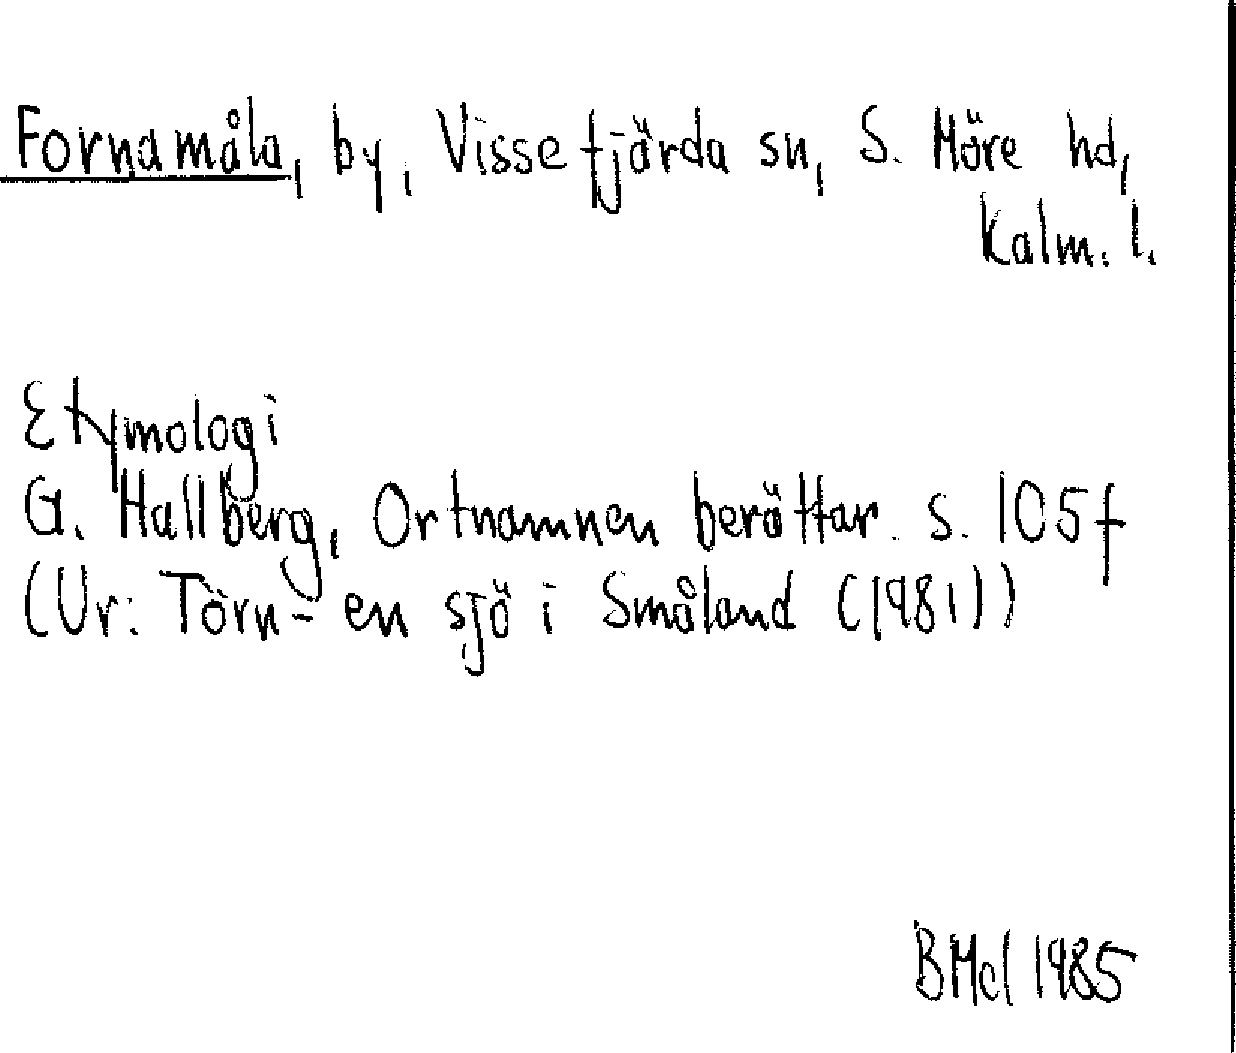 Fornamåla, by, Vissefjärda sn, S. Möre hd,
Kalm. l.
Etymologi
G. Hallberg, Ortnamnen berättar. s. 105f
(Ur: Törn - en sjö i Småland (1981))
BMcl 1985